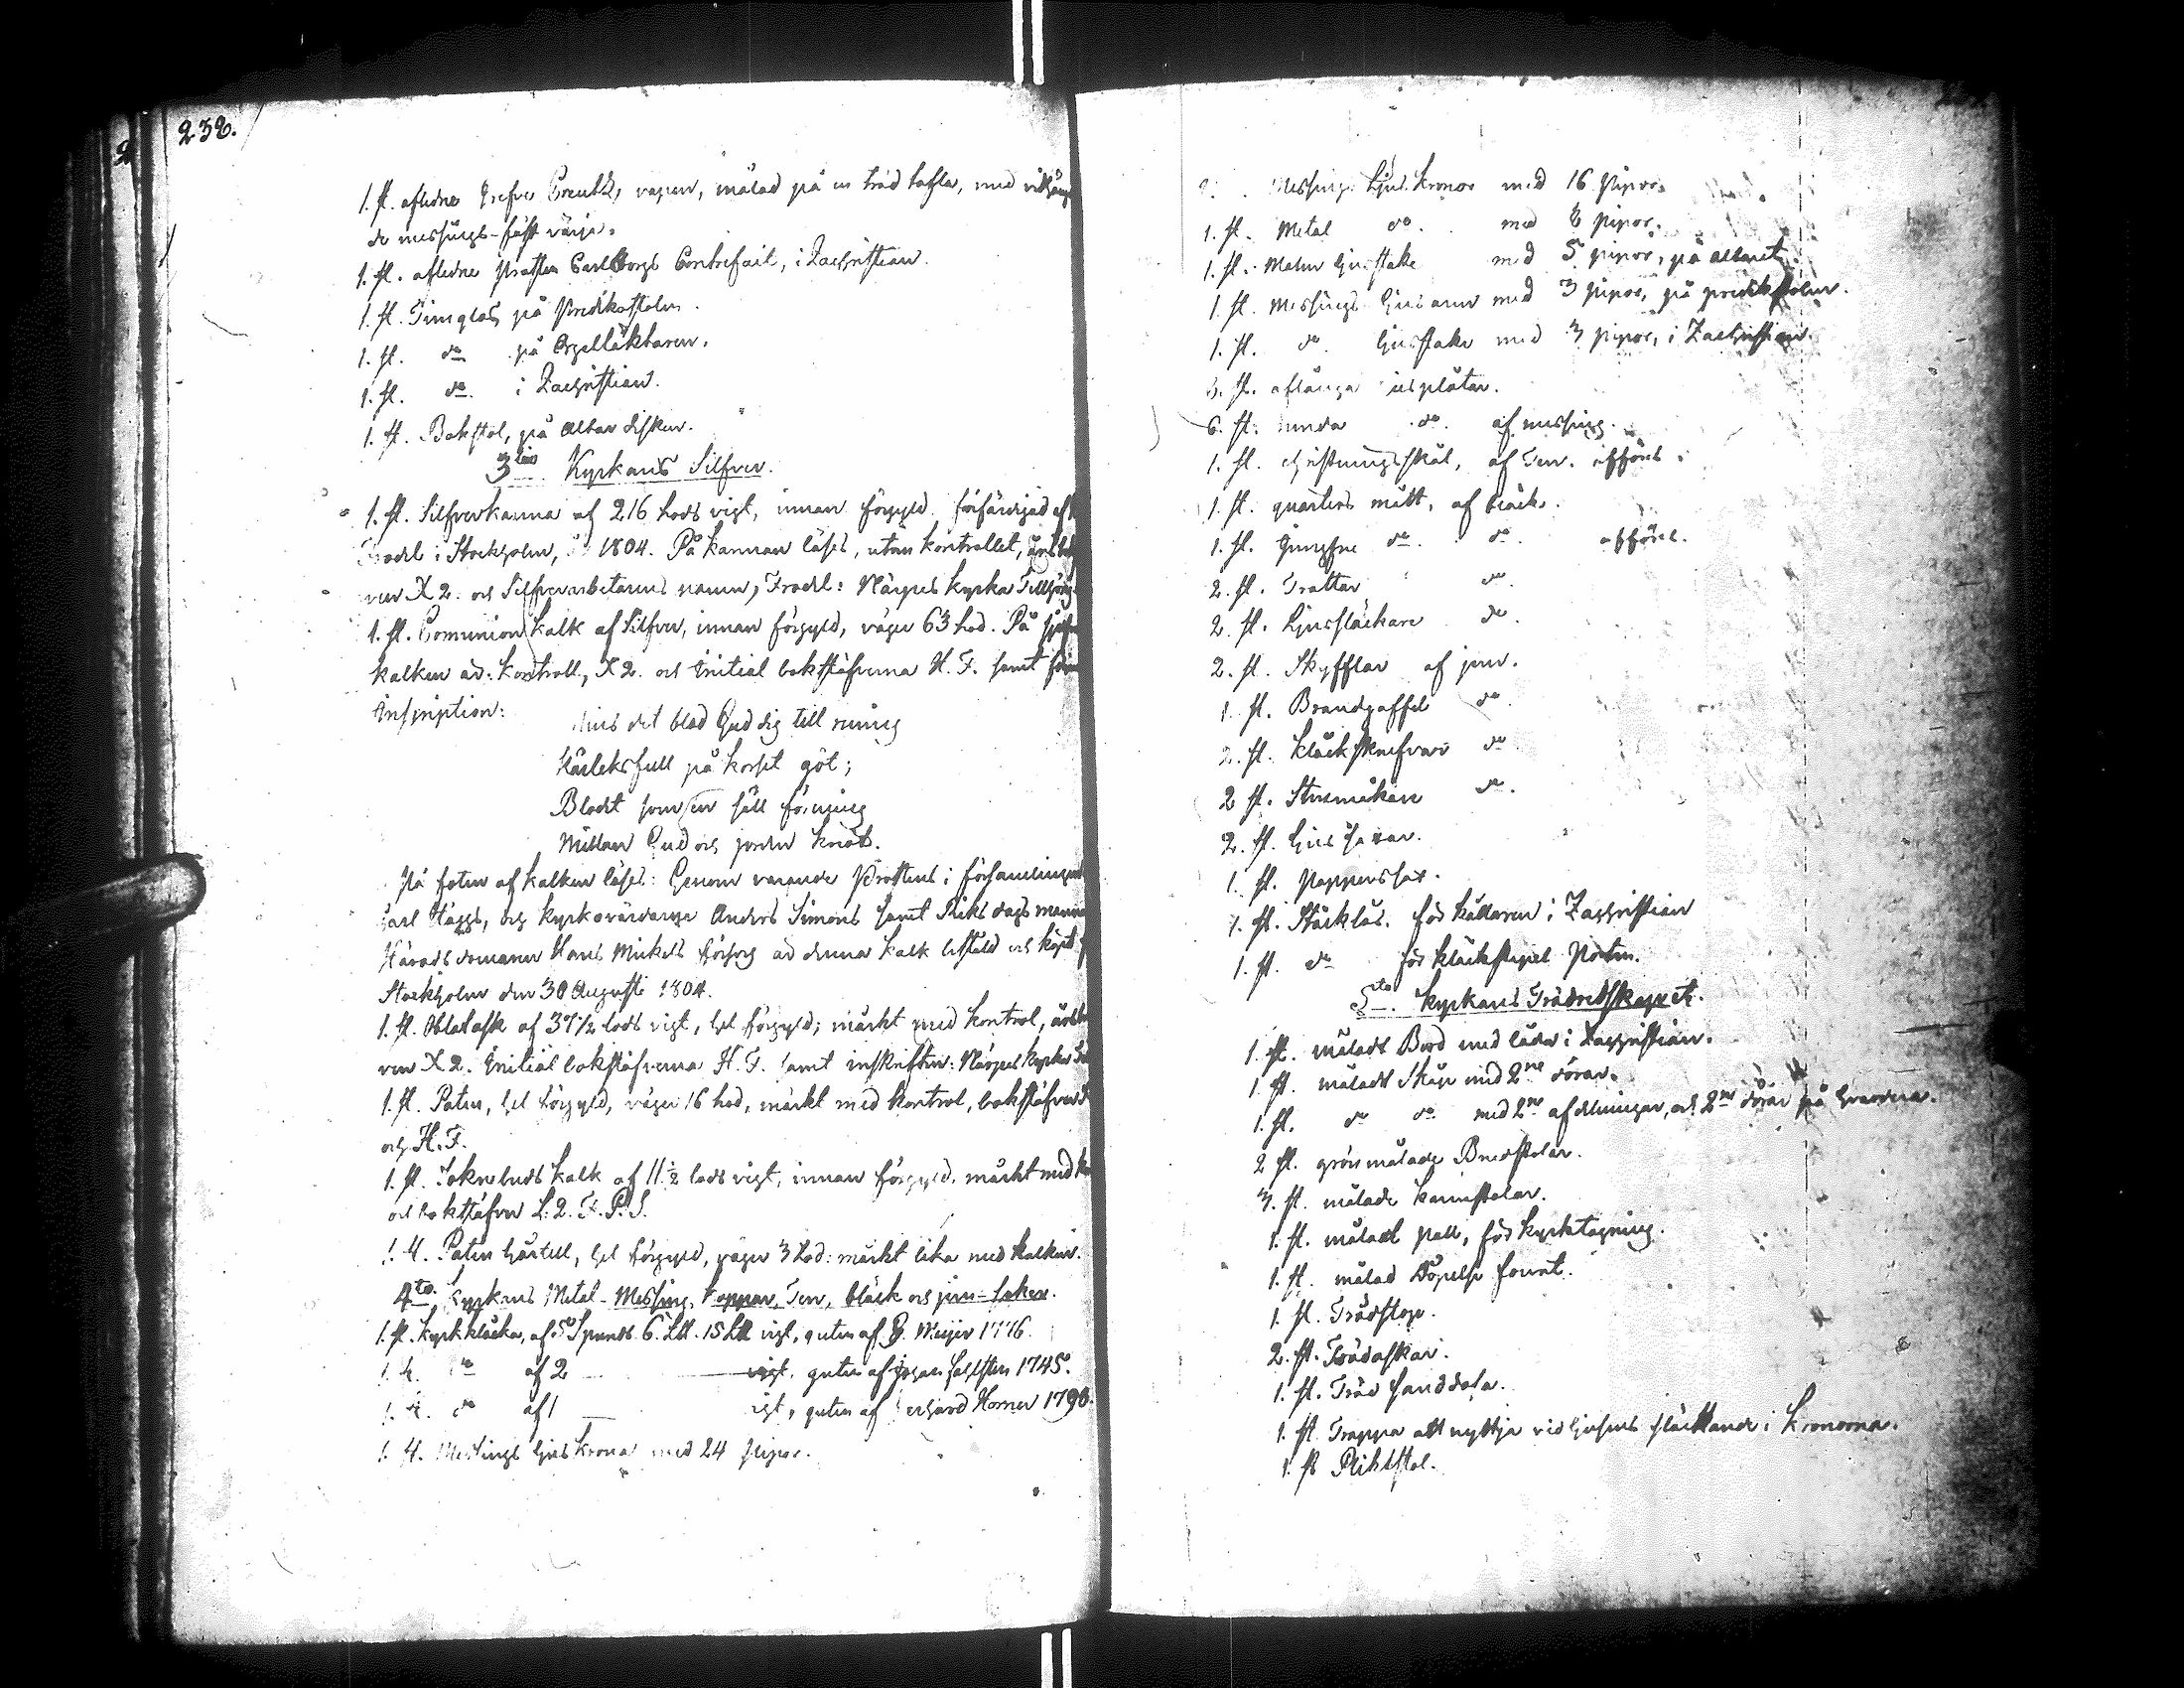 232.
1. st. afledne Grefve Creutz's vapen, målad på en träd tafla, med vidhängan
de messings-fäst värja.
1. st. afledne Prosten Carlborgs Contrefait, i Sachristian.
1. st. Timglas, på Predikostolen.
1. st. do på Orgelläktaren.
1. st. do i Sachristian.
1. st. Bokstol, på Altar disken.
3tio Kyrkans Silfver.
1. st. Silfverkanna af 216 lods vigt, innan förgyld. förfärdigad af
Frodel i Stockholm, 1804. På kannan läses, utan kontrollet, års bokstäf
ver X 2. och Silfverarbetarens namn, Frodel: Närpes kyrka Tillhörig
1. st. Comunion kalk af Silfver, innan förgyld, väger 63 lod. På sjelfva
kalken är: kontroll, X 2. och Initial bokstäfverna H. F. samt
Inscription:
det blod Gud dig till rening
Kärleksfull på korset göt;
Blodet som en säll förening
Mellan Gud och jorden knöt.
På foten af kalken läses: Genom varande Prostens i församlingen
Carl Häggs, och kyrkovärdarne Anders Simons samt Riksdags mannen
Häradsdomaren Hans Mickels försorg är denna kalk bestäld och köpt
Stockholm den 30 Augusti 1804.
1. st. Oblatask af 37 1/2 lods vigt, hel förgyld; märkt med kontrol, årsbok
ver X 2. Initial bokstäfverna H. F. samt inskriften: Närpes kyrka
1. st. Paten, hel förgyld, väger 16 lod, märkt med kontrol, bokstäfver
och H. F.
1. st. Sockenbuds kalk af 11 1/2 lods vigt, innan förgyld. märkt med
och bokstäfver L. 2. F. P. S.
1. st. Paten härtill, hel förgyld, väger 3 Lod: märkt lika med kalken.
4to Kyrkans Metal- Messing, koppar, Ten, bläck och jern-saker.
1. st. kyrkklocka, af 5 Sppunds 6 L. 15 vigt, guten af G. Meijer 1776.
1. st. do af 2 vigt. guten af Johan Fahlsten 1745.
1. st. do af 1 vigt, guten af Gerhard Horner 1790.
1. st. Messings ljus krona med 24 pipor.
Messings Ljus kronor med 16 pipor.
1. st. Metal do. med 8 pipor.
1. st. Malm ljusstake med 5 pipor, på altaret.
1. st. Messings ljus arm med 3 pipor, på predikstolen.
1. st. do. ljusstake med 3 pipor, i Sachristian.
st. aflånga plåtar.
6. st. runda do. af messing.
1. st. christningsskål, af Ten. afföres.
1. st. quarters mått, af bläck.
1. st. Jungfru do. do. afföres.
2. st. Trattar do.
2. st. Ljussläckare do.
2. st. Skyfflar af jern.
1. st. Brandgaffel do.
2. st. klockskrufvar do
2 st. do.
2. st. Ljus saxar.
1. st. Papperssax.
1. st. Stäcklås. för källaren i Sachristian
1. st. do för klockstapel Porten.
5to. Kyrkans Trädredskaper.
1. st. måladt Bord med låda i Sachristian.
1. st. måladt Skåp med 2ne dörar.
1. st. do do med 2ne afdelningar, och 2ne dörar på
2 st. grön målade Brudstolar.
3. st. målade karmstolar.
1. st. målad pall, för kyrktagning.
1. st. målad Döpelse fount.
1. st. Trädstop.
2. st. Trädaskar.
1. st. Träd sanddosa.
1. st. Trappa att nyttja vid ljusens släckande i kronorna.
1. st Pliktstol.